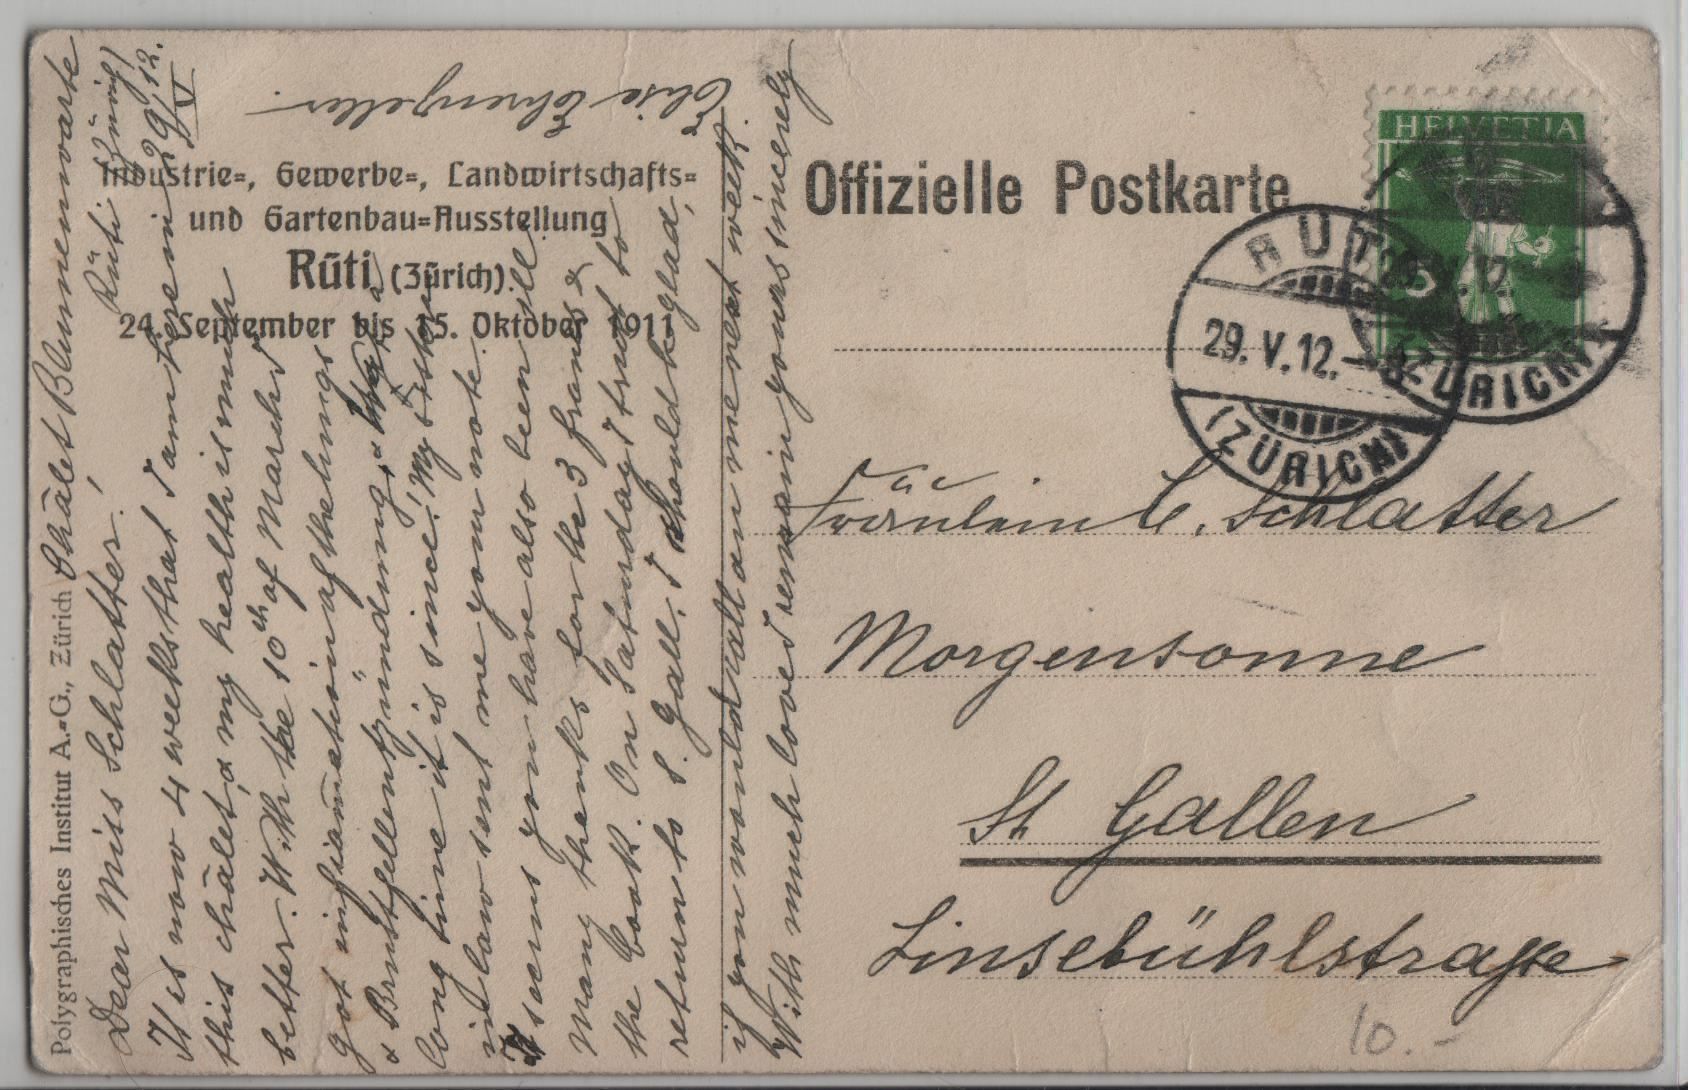 Industrie=, Gewerbe=, Landwirtschafts=
und Gartenbau=Ausstellung
Rüti (Zürich).
24. September bis 15. Oktober 1911
Polygraphisches Institut A.=G., Zürich
Offizielle Postkarte
HELVETIA
5
RÜTI
29. V. 12. – 8
(ZÜRICH)
RÜTI
29. V. 12. – 8
(ZÜRICH)
Fräulein C. Schlatter
Morgensonne
St. Gallen
Linsebühlstrasse
10.-
Châlet Blumenwarte
Rüti Zürich
29/V 12.
Dear Miss Schlatter!
It is now 4 weeks that I am here in
this châlet, & my health is much
better. With the 10th of March I
got inflammation of the lungs
& Brustfellentzündung, & that a
long time it is since! My sister
in law sent me your note.
It seems you have also been ill.
Many thanks for the 3 francs &
the book. On Saturday I trust to
return to S. Gall. I should be glad,
if you would call on me next week.
With much love I remain yours sincerely
Elise Ehrenzeller.